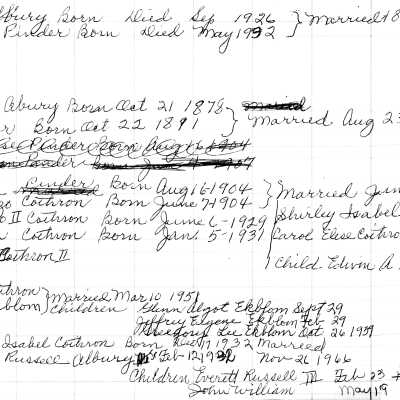 lbury Born Died Sep 1926 } Married 18
Pinder Born Died May 1932
Albury Born Oct 21 1878
r Born Oct 22 1891 } Married Aug 23
Pinder Born Aug 16 1904
Born Aug 16-1904 } Married Jun
Cothron Born June 7-1904
II Cothron Born June 6-1929 Shirley Isabel
Cothron Born Jan. 5-1931 Carol Elise Cothro
Cothron II Child Edwon A.
othron } Married Mar 10 1951
kblom Children Glenn Algot Ekblom Sept 29
Jeffrey Eugene Ekblom Feb 29
Gregory Lee Ekblom Oct 26 1959
Isabel Cothron Born 1932 Married
Russell Albury Feb 12, 1932 Nov 26 1966
Children Everett Russell III Feb 23
John William May 19